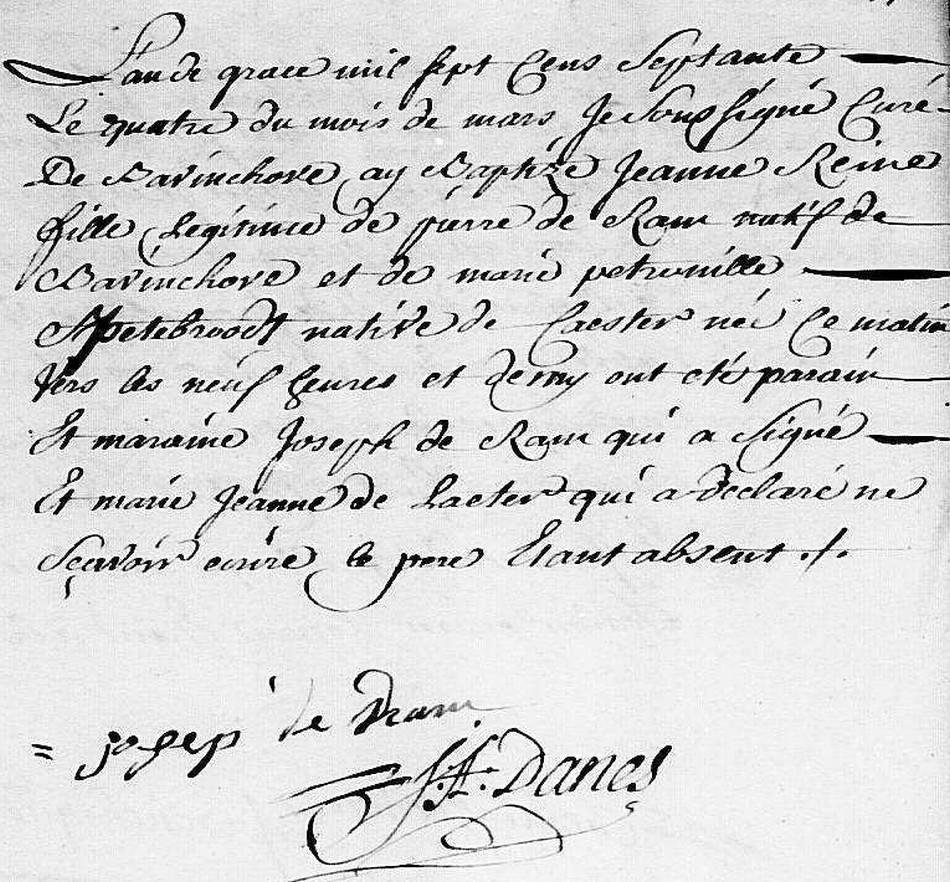 L'an de grace mil sept Cens Septante
Le quatre du mois de mars Je Soussigné Curé
De Bavinchove ay Baptizé Jeanne Reine
fille Legitime de pierre de Ram natif de
Bavinchove et de marie petronille
Spetebroodt native de Caester née Ce matin
Vers les neuf heures et demy ont eté parain
Et maraine Joseph de Ram qui a Signé
Et marie Jeanne de Laeter qui a declaré ne
Sçavoir ecrire le pere Etant absent ./.
= josep de Dram
J.F. Danes